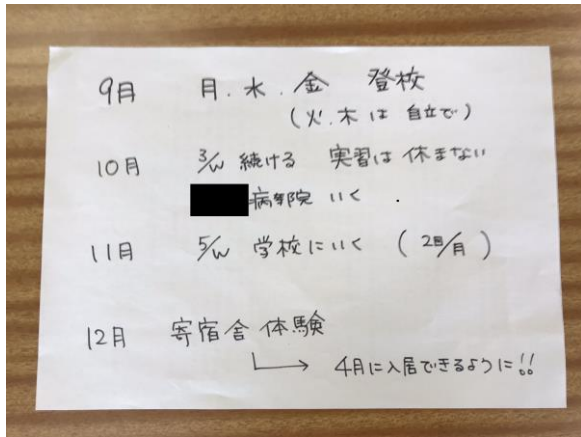 9月 月.水.金 登校
(火.木は自立で)
10月 3/w 続ける 実習は休まない
病院いく
11月 5/w 学校にいく (2回/月)
12月 寄宿舎体験
→ 4月に入居できるように!!